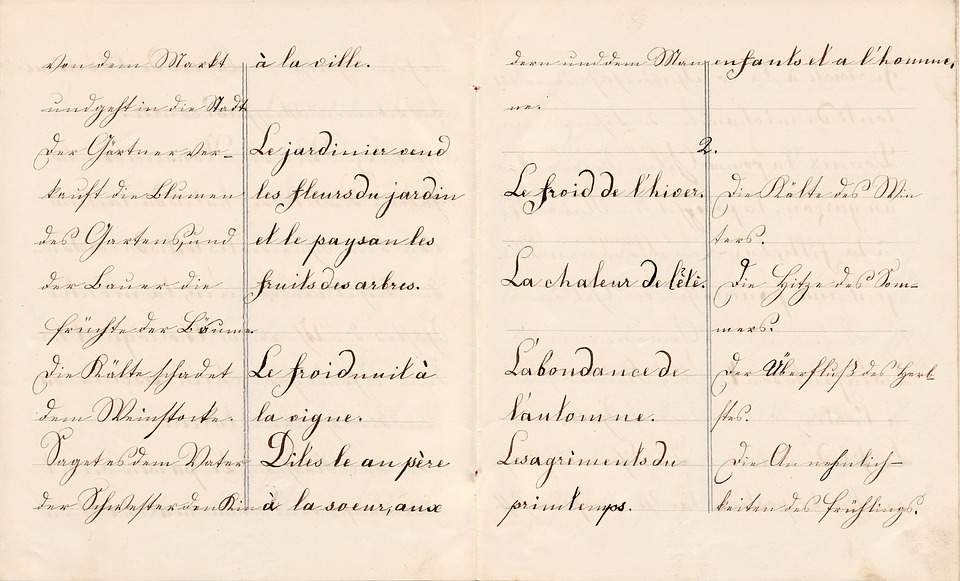 von dem Markt
und geht in die Stadt
Der Gärtner ver-
kauft die Blumen
des Gartens, und
der Bauer die
Früchte der Bäume.
Die Kälte schadet
dem Weinstocke.
Saget es dem Vater
der Schwester den Kin
à la ville.
Le jardinier vend
les fleurs du jardin
et le paysan les
fruits des arbres.
Le froid nuit à
la vigne.
Dites le au père
à la soeur, aux
dern und dem Man
ne.
enfants et a l'homme.
2.
Le froid de l'hiver.
La chaleur de l'été.
L'abondance de
l'automne.
Les agrèments du
printemps.
Die Kälte des Win
ters.
Die Hitze des Som-
mers.
Der Überfluß des Herb
stes.
Die Annehmlich-
keiten des Frühlings.